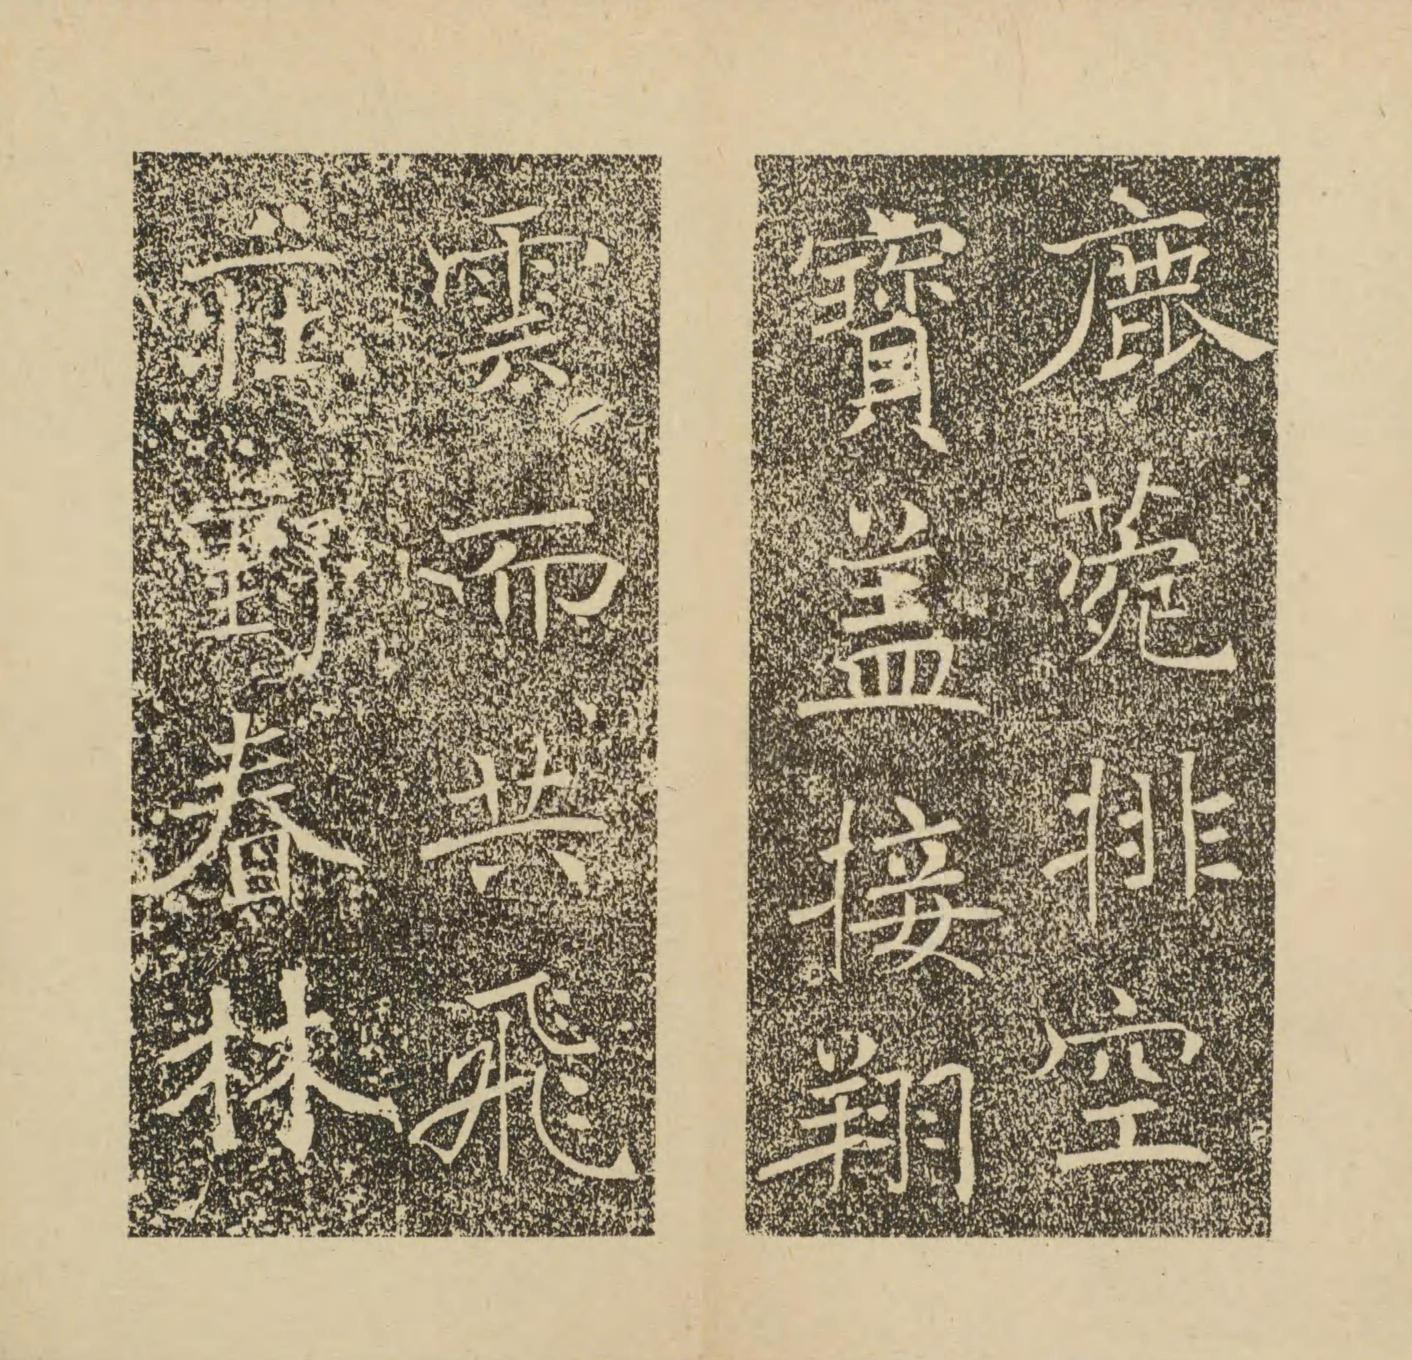 鹿菀排空
寶盖接翔
雲而共飛
莊野春林